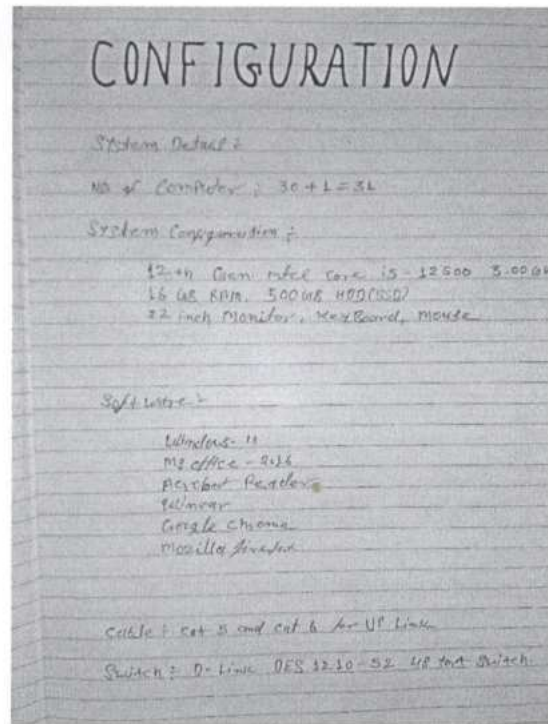 CONFIGURATION
System Detail :
No of Computer : 30 + 1 = 31
System Configuration :
12th Gen intel core i5 - 12500 3.00 GH
16 GB RAM, 500 GB HDD(SSD)
22 inch Monitor, KeyBoard, Mouse
Software :
Windows - 11
MS office - 2016
Acrobat Reader
Winrar
Google Chrome
Mozilla firefox
Cable : Cat 5 and Cat 6 for UP Link
Switch : D-Link DES 1210-52 48 Port Switch